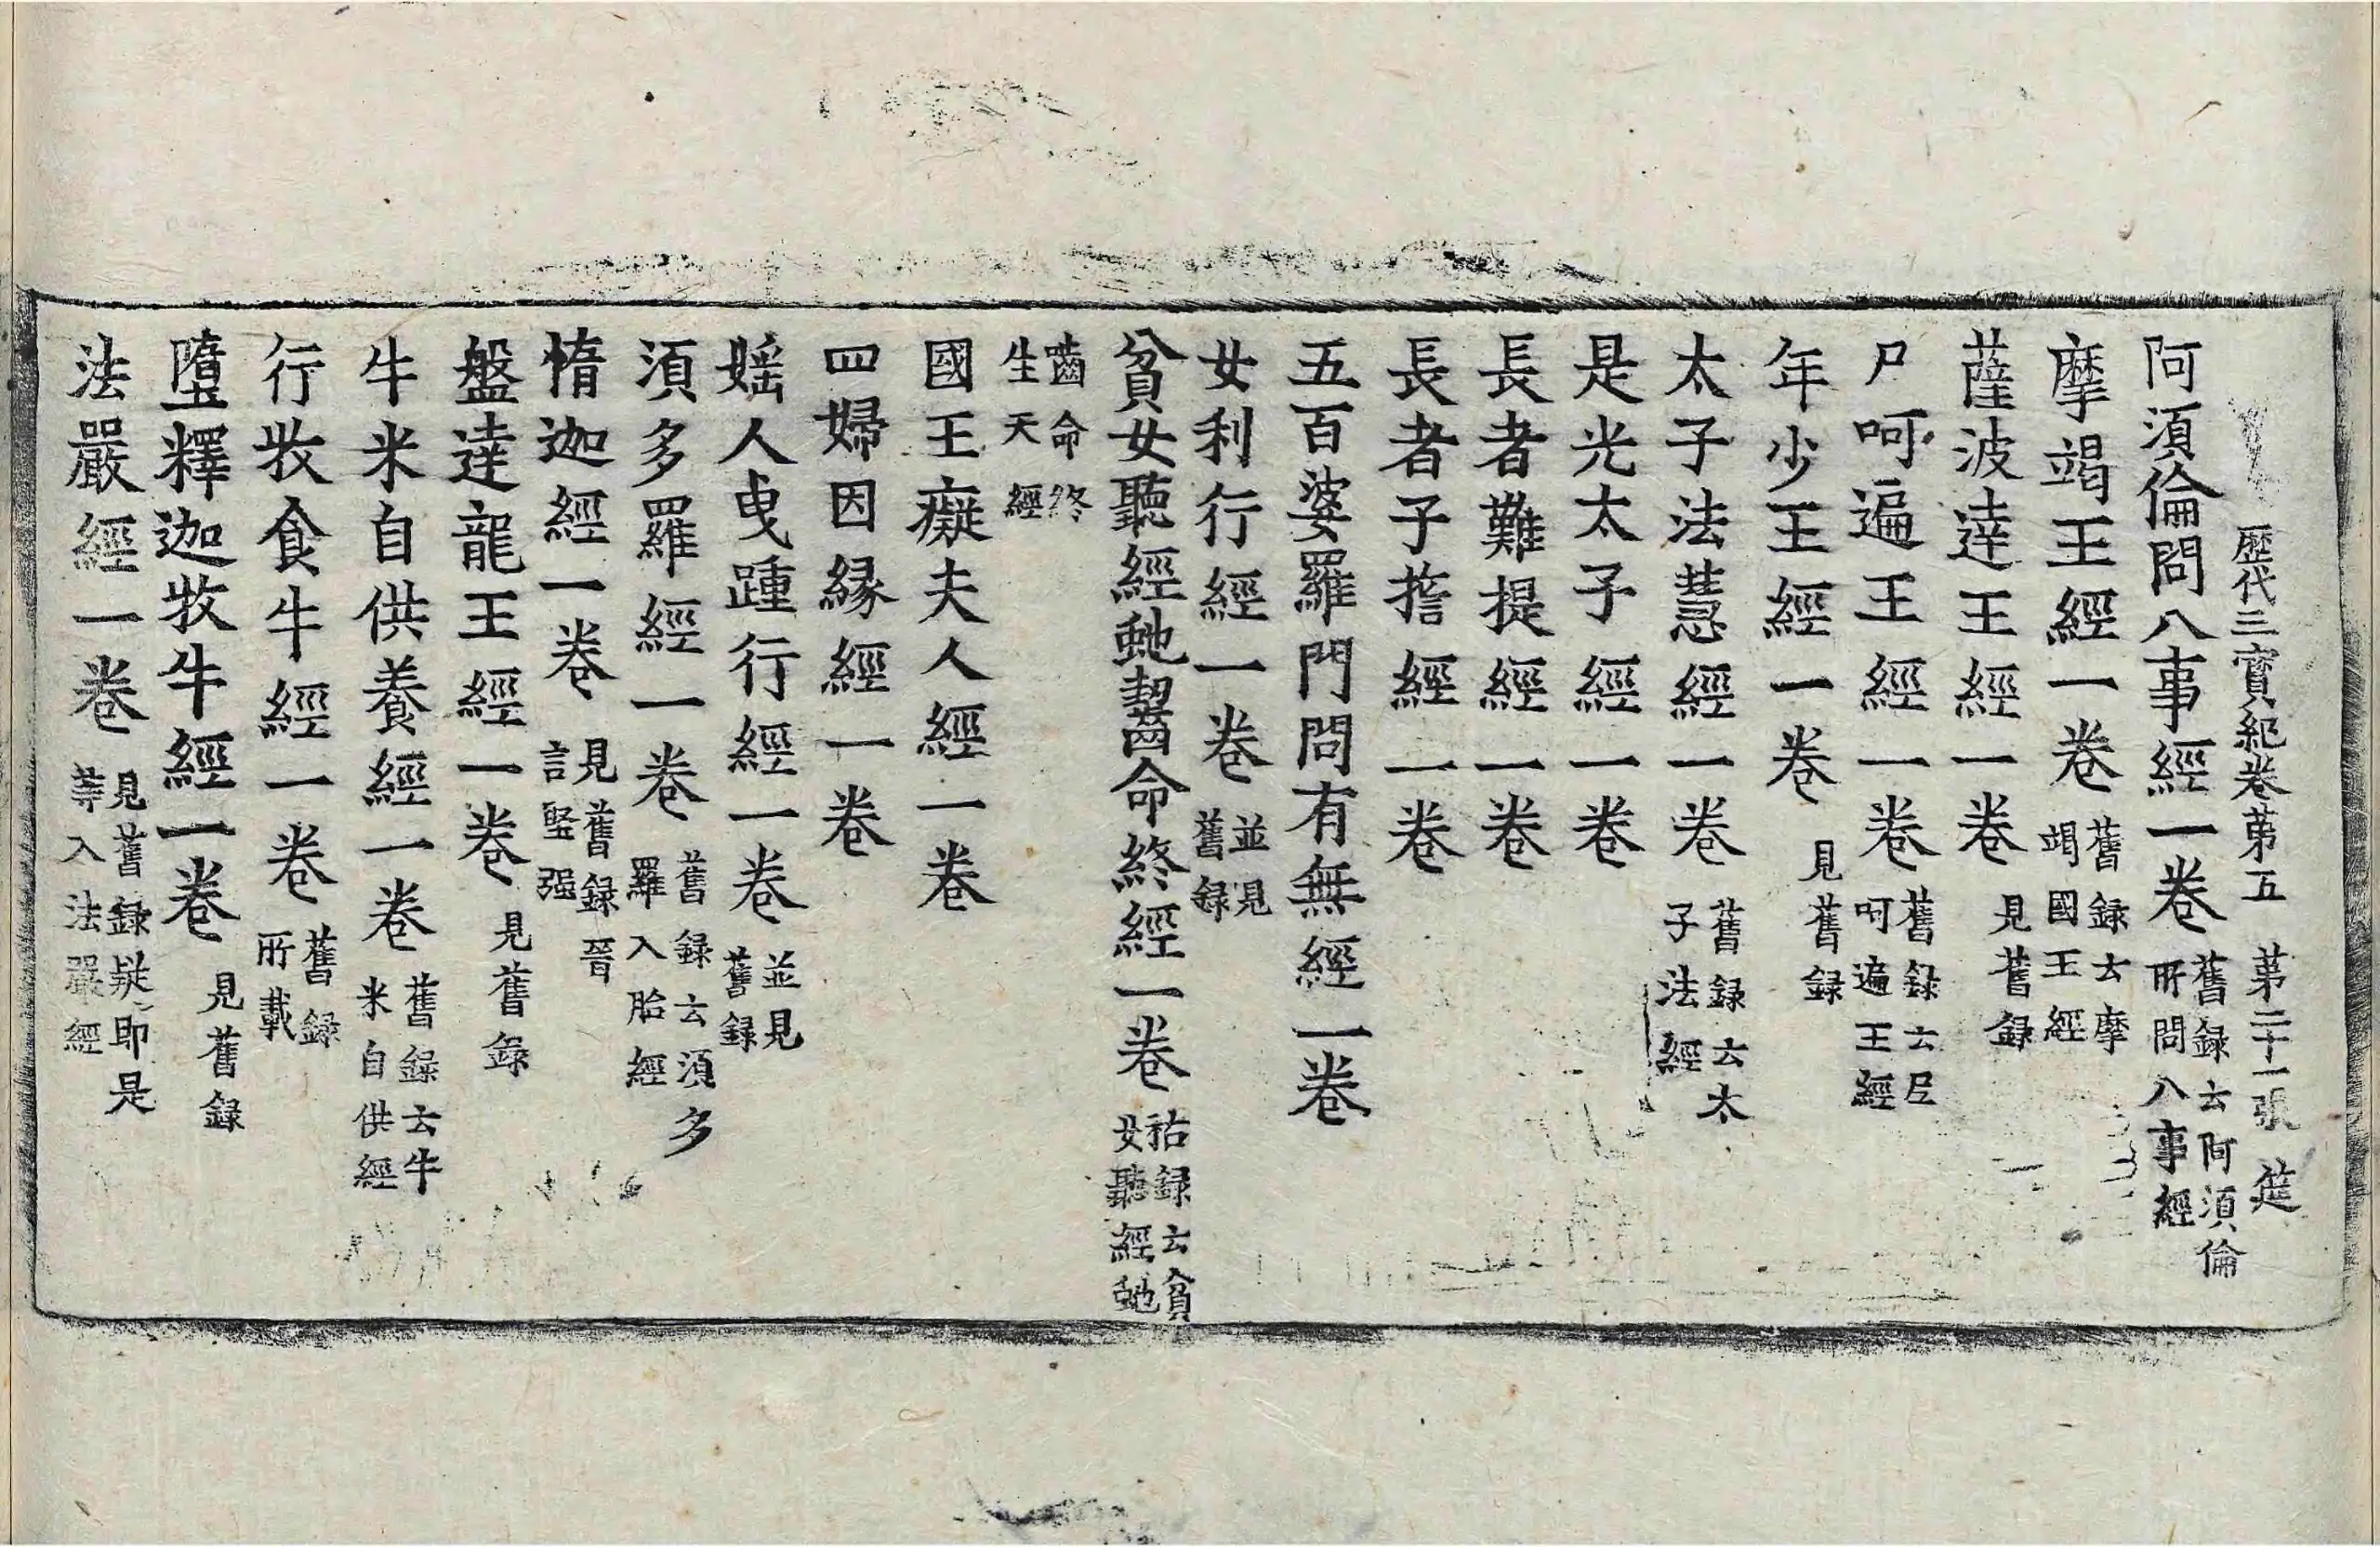 歷代三寶紀卷第五 第二十一張 筵
阿須倫問八事經一卷 舊録云阿須倫所問八事經
摩竭王經一卷 舊録云摩竭國王經
薩波達王經一卷 見舊録
尸呵遍王經一卷 舊録云尸呵遍王經
年少王經一卷 見舊録
太子法慧經一卷 舊録云太子法經
是光太子經一卷
長者難提經一卷
長者子誓經一卷
五百婆羅門問有無經一卷
女利行經一卷 並見舊録
貧女聽經虵齧命終經一卷 祐録云貧女聽經虵
嚙命終生天經
國王癡夫人經一卷
四婦因緣經一卷
婬人曳踵行經一卷 並見舊録
須多羅經一卷 舊録云須多羅入胎經
惰迦經一卷 見舊録晉言堅强
盤達龍王經一卷 見舊録
牛米自供養經一卷 舊録云牛米自供經
行牧食牛經一卷 舊録所載
墮釋迦牧牛經一卷 見舊録
法嚴經一卷 見舊録疑即是等入法嚴經